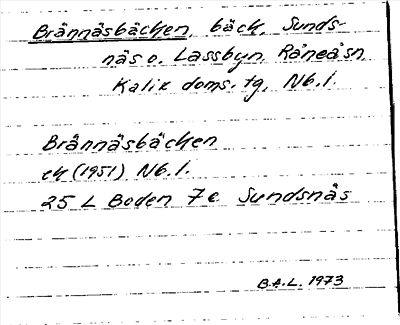 Brännäsbäcken, bäck, Sunds-
näs o. Lassbyn, Råneå sn
Kalix doms. tg, Nb. l.
Brännäsbäcken
ek (1951) Nb. l.
25 L Boden 7e Sundsnäs
B.A.L. 1973